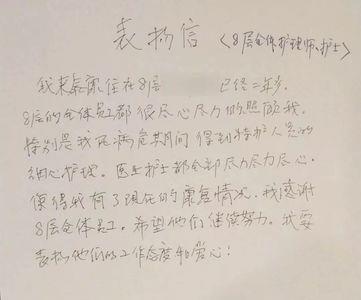 表扬信 〈8层全体护理师、护士〉
我来泰康住在8层 已经二年多。
8层的全体员工都很尽心尽力的照顾我。
特别是我在病危其间得到特护人员的
细心护理。医生护士都全部尽力尽力尽心。
使得我有了现在的康复情况。我感谢
8层全体员工。希望他们继续努力。我要
表扬他们的工作态度和爱心!